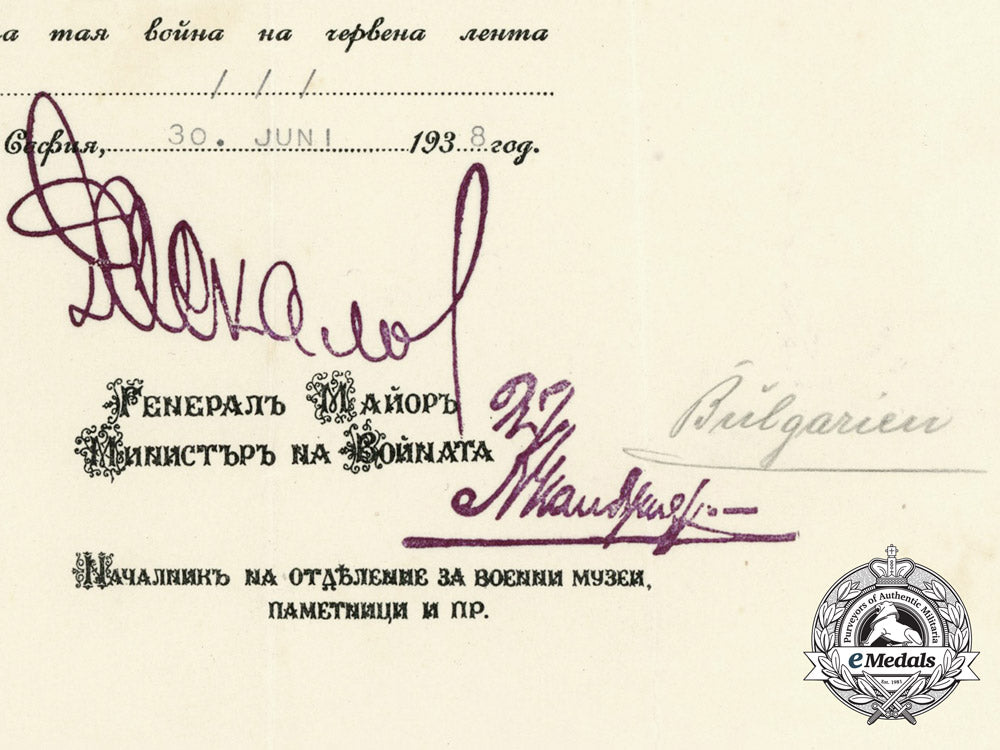 за тая война на червена лента
/ / /
София, 30. JUNI 1938 год.
Даскалов
Генералъ Майоръ
Министъръ на Войната
Bŭlgarien
Началникъ на отдѣление за военни музеи,
паметници и пр.
Purveyors of Authentic Militaria
eMedals
Est. 1981